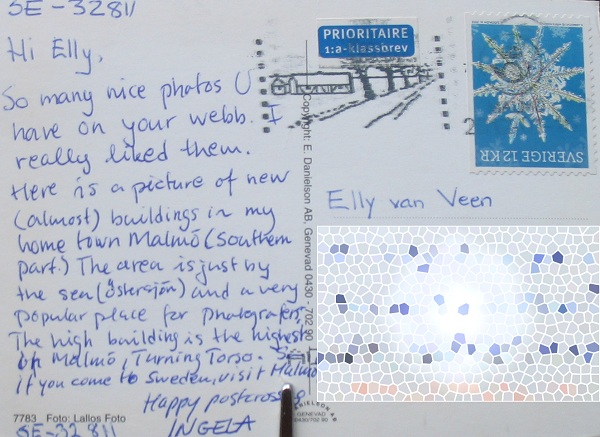 SE-32811
Hi Elly,
So many nice photos U
have on your webb. I
really liked them.
Here is a picture of new
(almost) buildings in my
home town Malmö (Southern
part.) The area is just by
the sea (Östersjön) and a very
popular place for photografers.
The high building is the highest
in Malmö, Turning Torso.
if you come to Sweden, visit Malmö
Happy postcrossing
INGELA
7783 Foto: Lallos Foto
SE-32811
Copyright: E. Danielson AB, Genevad 0430 - 702 90
PRIORITAIRE
1:a-klassbrev
SVERIGE 12 KR
Elly van Veen
DANIELSON
GENEVAD
0430/702 90